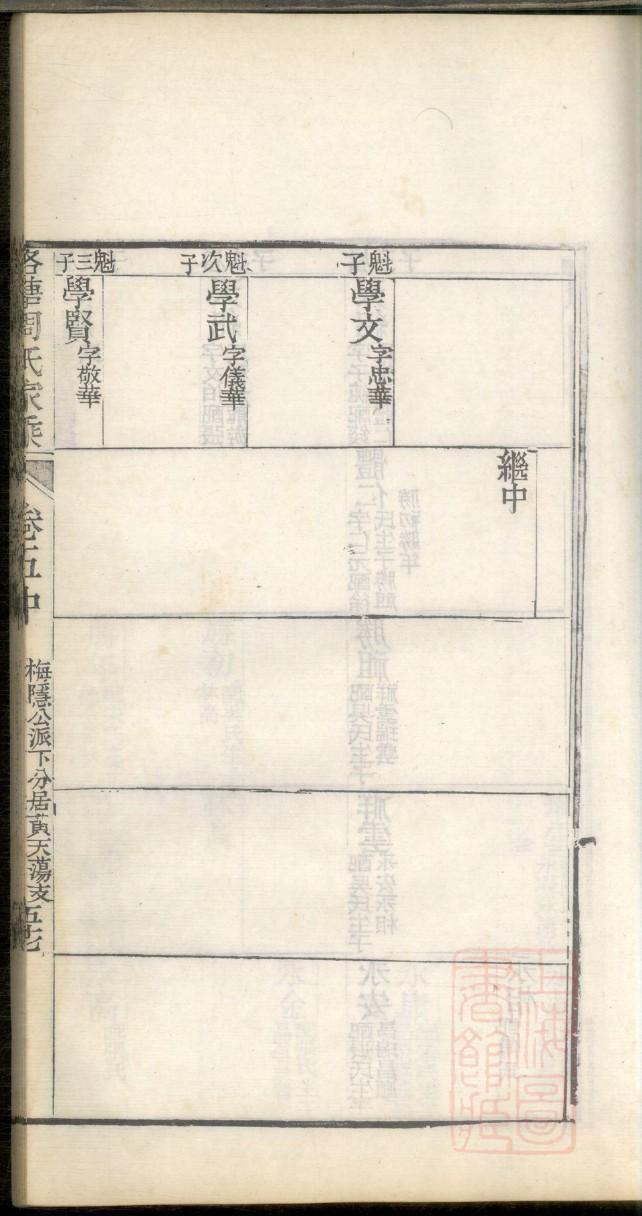 魁子
學文字忠華
魁次子
學武字儀華
魁三子
學賢字敬華
繼中
洛塘周氏家乘
卷五中
梅隱公派下分居黃天蕩支
上海圖書館藏